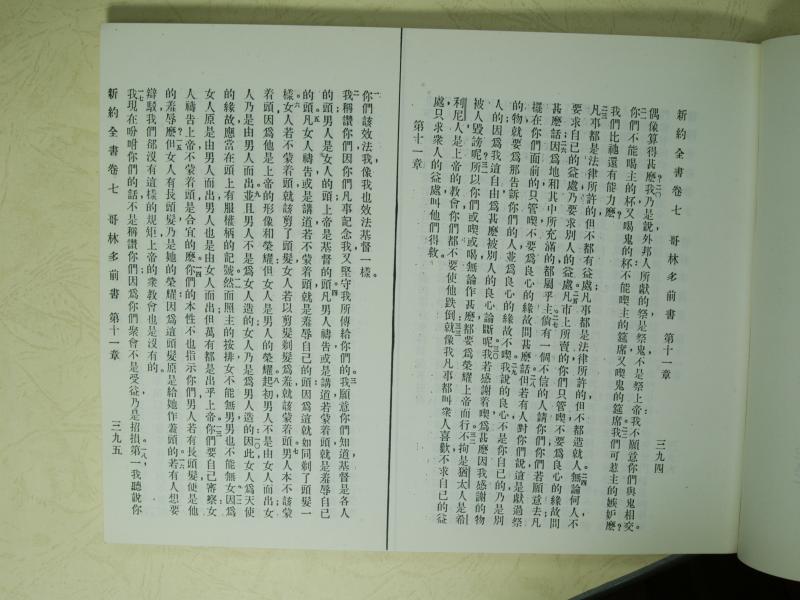 新約全書卷七 哥林多前書 第十一章 三九四
偶像算得甚麼我乃是說外邦人所獻的祭是祭鬼不是祭上帝我不願意你們與鬼相交。
你們不能喝主的杯又喝鬼的杯不能喫主的筵席又喫鬼的筵席我們可惹主的嫉妒麼？
我們比祂還有能力麼？
凡事都是法律所許的但不都有益處凡事都是法律所許的但不都造就人無論何人不
要求自己的益處乃要求別人的益處凡市上所賣的你們只管喫不要爲良心的緣故問
甚麼話因爲地和其中所充滿的都屬乎主倘有一個不信的人請你們你們若願意去凡
擺在你們面前的只管喫不要爲良心的緣故問甚麼話但若有人對你們說這是獻過祭
的物就要爲那告訴你們的人並爲良心的緣故不喫我說的良心不是你自己的乃是別
人的因爲我這自由爲甚麼被別人的良心論斷呢我若感謝着喫爲甚麼因我感謝的物
被人毀謗呢所以你們或喫或喝無論作甚麼都要爲榮耀上帝而行不拘是猶太人是希
利尼人是上帝的教會你們都不要使他跌倒就像我凡事都叫衆人喜歡不求自己的益
處只求衆人的益處叫他們得救。
第十一章
你們該效法我像我也效法基督一樣。
我稱讚你們因你們凡事記念我又堅守我所傳給你們的我願意你們知道基督是各人
的頭男人是女人的頭上帝是基督的頭凡男人禱告或是講道若蒙着頭就是羞辱自己
的頭凡女人禱告或是講道若不蒙着頭就是羞辱自己的頭因爲這就如同剃了頭髮一
樣女人若不蒙着頭就該剪了頭髮女人若以剪髮剃髮爲羞就該蒙着頭男人本不該蒙
着頭因爲他是上帝的形像和榮耀但女人是男人的榮耀起初男人不是由女人而出女
人乃是由男人而出並且男人不是爲女人造的女人乃是爲男人造的因此女人爲天使
的緣故應當在頭上有服權柄的記號然而照主的按排女不能無男男也不能無女因爲
女人原是由男人而出男人也是由女人而出但萬有都是出乎上帝你們要自己審察女
人禱告上帝不蒙着頭是合宜的麼你們的本性不也指示你們男人若有長頭髮便是他
的羞辱麼但女人有長頭髮乃是她的榮耀因爲這頭髮原是給她作蓋頭的若有人想要
辯駁我們都沒有這樣的規矩上帝的衆教會也是沒有的。
我現在吩咐你們的話不是稱讚你們因爲你們聚會不是受益乃是招損第一我聽說你
新約全書卷七 哥林多前書 第十一章 三九五